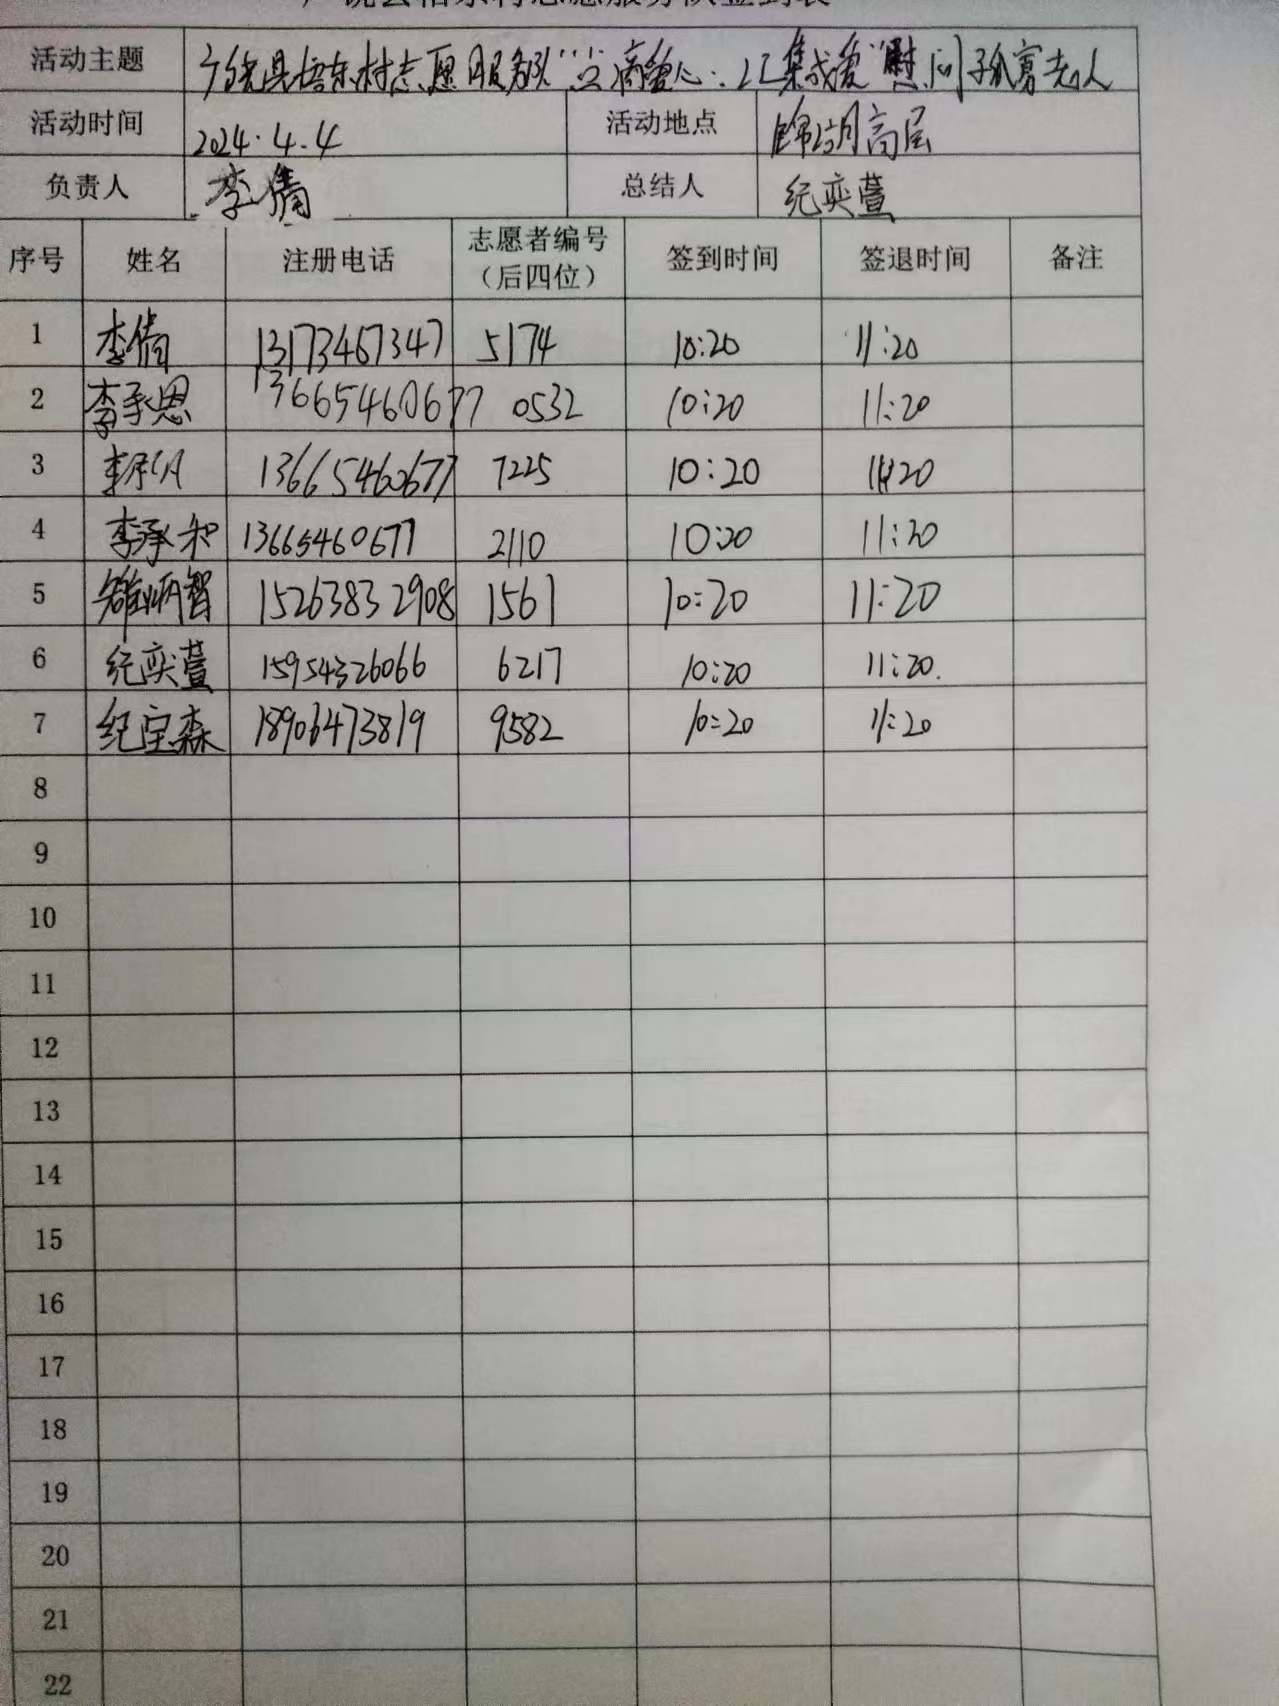 活动主题 广饶县梧东村志愿服务队"点滴爱心·汇集成爱"慰问孤寡老人
活动时间 2024.4.4 活动地点 锦湖高层
负责人 李倩 总结人 纪奕萱
序号 姓名 注册电话 志愿者编号(后四位) 签到时间 签退时间 备注
1 李倩 13173467347 5174 10:20 11:20
2 李承恩 13665460677 0532 10:20 11:20
3 13665460677 7225 10:20 11:20
4 李承和 13665460677 2110 10:20 11:20
5 炳智 15263832908 1561 10:20 11:20
6 纪奕萱 15954326066 6217 10:20 11:20.
7 纪宝森 18906473819 9582 10:20 11:20
8
9
10
11
12
13
14
15
16
17
18
19
20
21
22